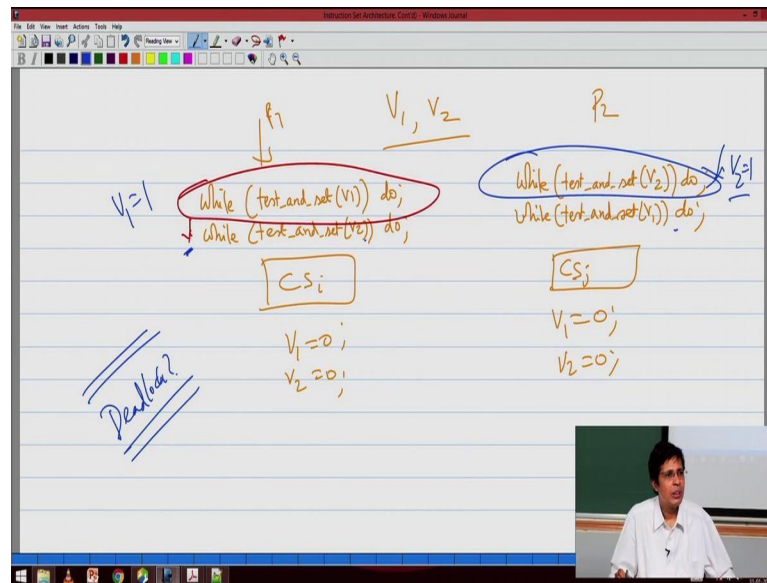 Instruction Set Architecture, Cont'd) - Windows Journal
File Edit View Insert Actions Tools Help
Reading View
B I
P1
V1, V2
P2
V1=1
while (test_and_set(V1)) do;
while (test_and_set(V2)) do;
while (test_and_set(V2)) do;
V2=1
while (test_and_set(V1)) do;
CSi
CSj
V1=0;
V2=0;
V1=0;
V2=0;
Deadlock?